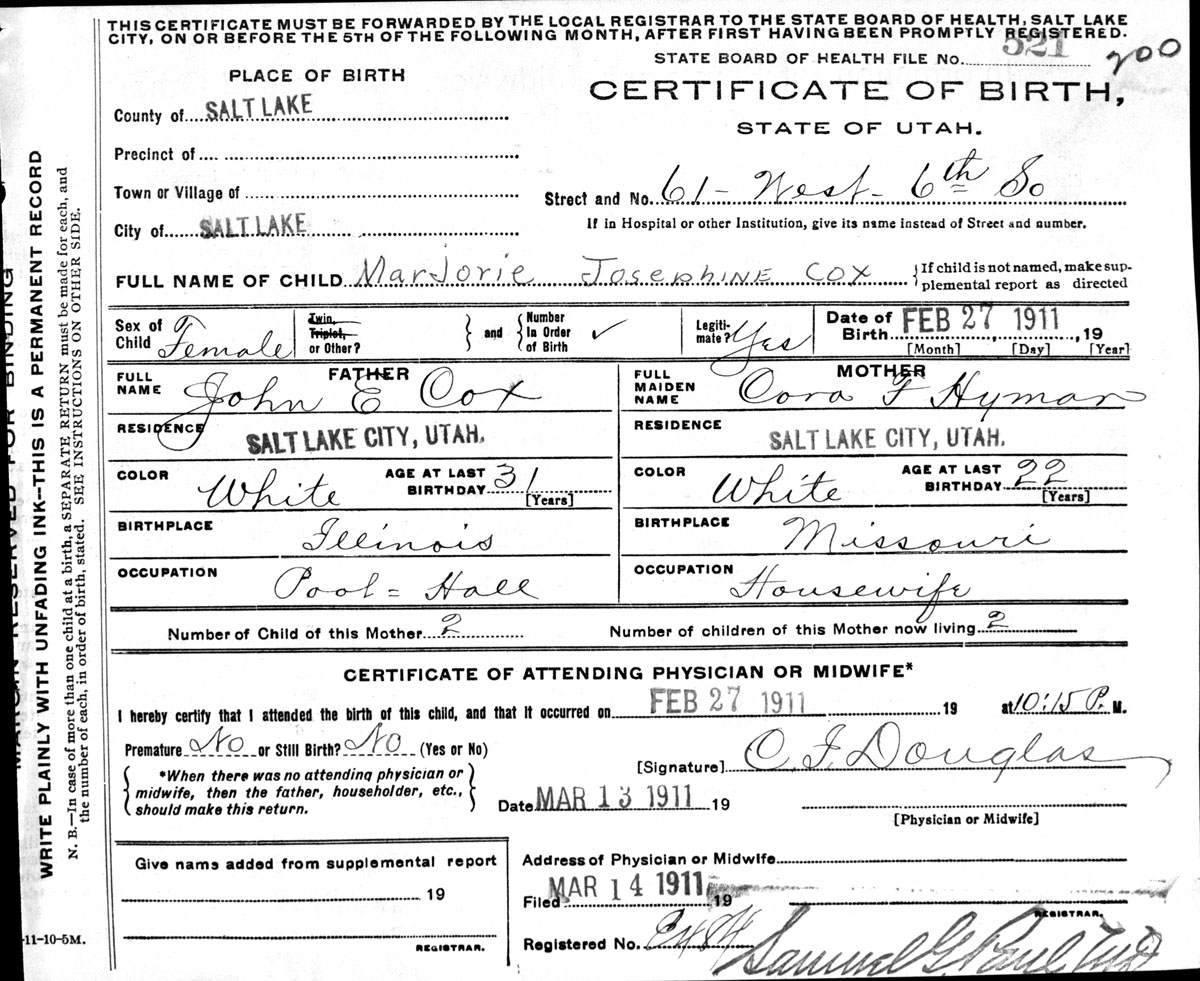 THIS CERTIFICATE MUST BE FORWARDED BY THE LOCAL REGISTRAR TO THE STATE BOARD OF HEALTH, SALT LAKE
CITY, ON OR BEFORE THE 5TH OF THE FOLLOWING MONTH, AFTER FIRST HAVING BEEN PROMPTLY REGISTERED.
STATE BOARD OF HEALTH FILE NO. 521 200
PLACE OF BIRTH
CERTIFICATE OF BIRTH,
STATE OF UTAH.
County of SALT LAKE
Precinct of
Town or Village of
Street and No. 61 - West - 6th So
City of SALT LAKE
If in Hospital or other Institution, give its name instead of Street and number.
FULL NAME OF CHILD Marjorie Josephine Cox
{If child is not named, make sup-
plemental report as directed
Sex of Child Female
Twin, Triplet, or Other?
} and {Number In Order of Birth ✓
Legiti-mate? Yes
Date of Birth FEB 27 1911, 19
[Month] [Day] [Year]
FATHER
FULL NAME John E Cox
MOTHER
FULL MAIDEN NAME Cora F Hyman
RESIDENCE SALT LAKE CITY, UTAH.
RESIDENCE SALT LAKE CITY, UTAH.
COLOR White
AGE AT LAST BIRTHDAY 31 [Years]
COLOR White
AGE AT LAST BIRTHDAY 22 [Years]
BIRTHPLACE Illinois
BIRTHPLACE Missouri
OCCUPATION Pool = Hall
OCCUPATION Housewife
Number of Child of this Mother 2
Number of children of this Mother now living 2
CERTIFICATE OF ATTENDING PHYSICIAN OR MIDWIFE*
I hereby certify that I attended the birth of this child, and that it occurred on FEB 27 1911 19 at 10:15 P. M.
Premature No or Still Birth? No (Yes or No)
[Signature] C. F. Douglas
{ *When there was no attending physician or
midwife, then the father, householder, etc.,
should make this return. }
Date MAR 13 1911 19
[Physician or Midwife]
Give name added from supplemental report
19
REGISTRAR.
Address of Physician or Midwife
Filed MAR 14 1911 19
REGISTRAR.
Registered No.
Samuel G. Paul MD
WRITE PLAINLY WITH UNFADING INK--THIS IS A PERMANENT RECORD
N. B.—In case of more than one child at a birth, a SEPARATE RETURN must be made for each, and
the number of each, in order of birth, stated. SEE INSTRUCTIONS ON OTHER SIDE.
MARGIN RESERVED FOR BINDING
-11-10-5M.